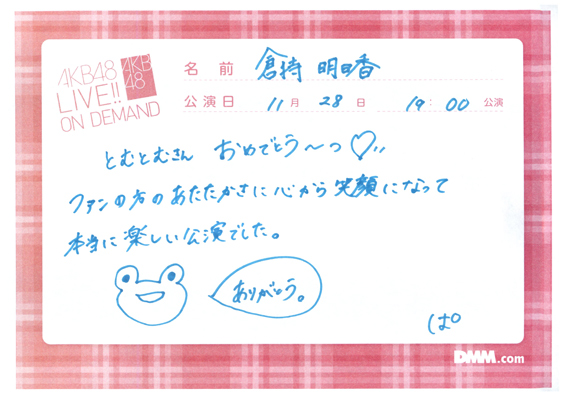 AKB48
LIVE!!
ON DEMAND
AKB
48
名前 倉持 明日香
公演日 11月 28日 19:00 公演
とむとむさん おめでとう〜っ♡!!
ファンの方のあたたかさに心から笑顔になって
本当に楽しい公演でした。
ありがとう。
ぱ。
DMM.com